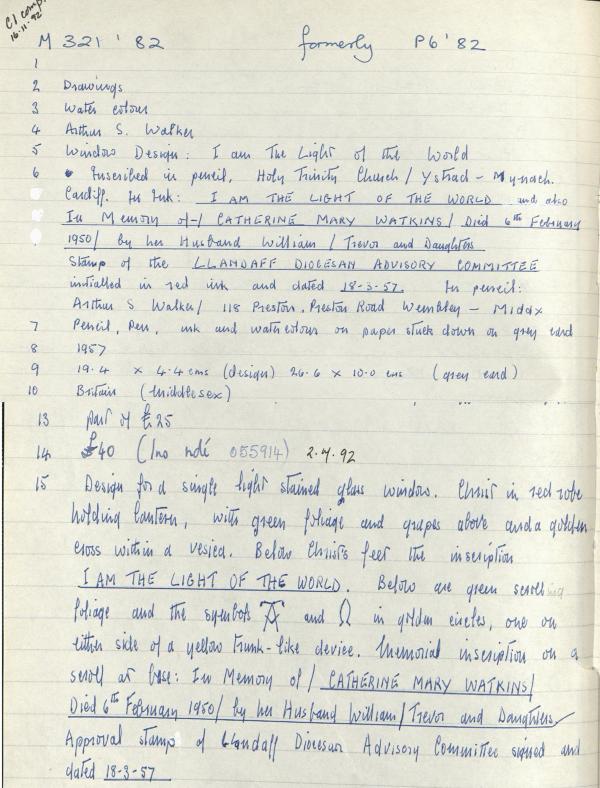 CI comp.
16.11.92
M 321 '82 formerly P6 '82
1
2 Drawings
3 Water colour
4 Arthur S. Walker
5 Window Design: I am The Light of the World
6 Inscribed in pencil, Holy Trinity Church / Ystrad - Mynach.
Cardiff. In Ink: I AM THE LIGHT OF THE WORLD and also
In Memory of-/ CATHERINE MARY WATKINS / Died 6th February
1950/ by her Husband William / Trevor and Daughters
Stamp of the LLANDAFF DIOCESAN ADVISORY COMMITTEE
initialled in red ink and dated 18-3-57. In pencil:
Arthur S Walker/ 118 Preston, Preston Road Wembley - Middx
7 Pencil, Pen, ink and watercolour on paper stuck down on grey card
8 1957
9 19.4 x 4.4 cms (design) 26.6 x 10.0 cms (grey card)
10 Britain (Middlesex)
13 part of £25
14 £40 (Ino ndé 055914) 2.4.92
15 Design for a single light stained glass window. Christ in red robe
holding lantern, with green foliage and grapes above and a golden
cross within a vesica. Below Christ's feet the inscription
I AM THE LIGHT OF THE WORLD. Below are green scrolling
foliage and the symbols A and Ω in golden circles, one on
either side of a yellow trunk-like device. Memorial inscription on a
scroll at base: In Memory of / CATHERINE MARY WATKINS/
Died 6th February 1950/ by her Husband William / Trevor and Daughters/
Approval stamp of Llandaff Diocesan Advisory Committee signed and
dated 18-3-57